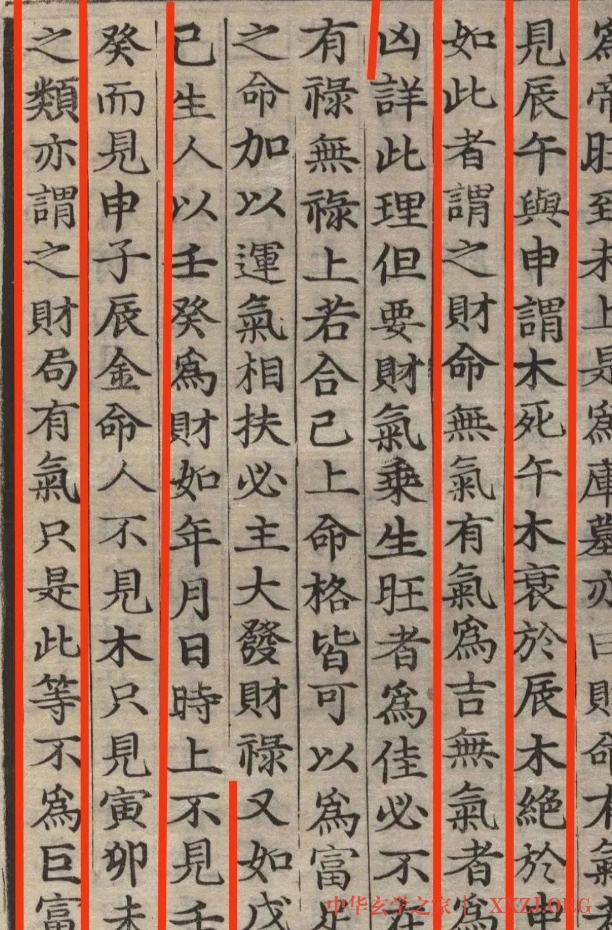 爲帝旺至未上是爲庫墓亦曰財命有氣
見辰午與申謂木死午木衰於辰木絕於申
如此者謂之財命無氣有氣爲吉無氣者爲
凶詳此理但要財氣乗生旺者爲佳必不在
有祿無祿上若合已上命格皆可以爲富足
之命加以運氣相扶必主大發財祿又如戊
己生人以壬癸爲財如年月日時上不見壬
癸而見申子辰金命人不見木只見寅卯未
之類亦謂之財局有氣只是此等不爲巨富
中华玄学之家 | XXZJ.ORG